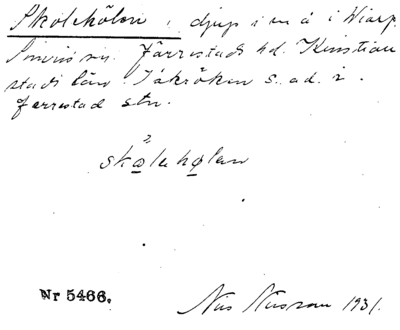 Skolehölen, djup i en å i Wiarp
Simris sn. Järrestads hd. Kristian
stads län. Jäkröken s. ad. i.
Järrestad stn.
skolahølan
Nr 5466.
Nils 1931.